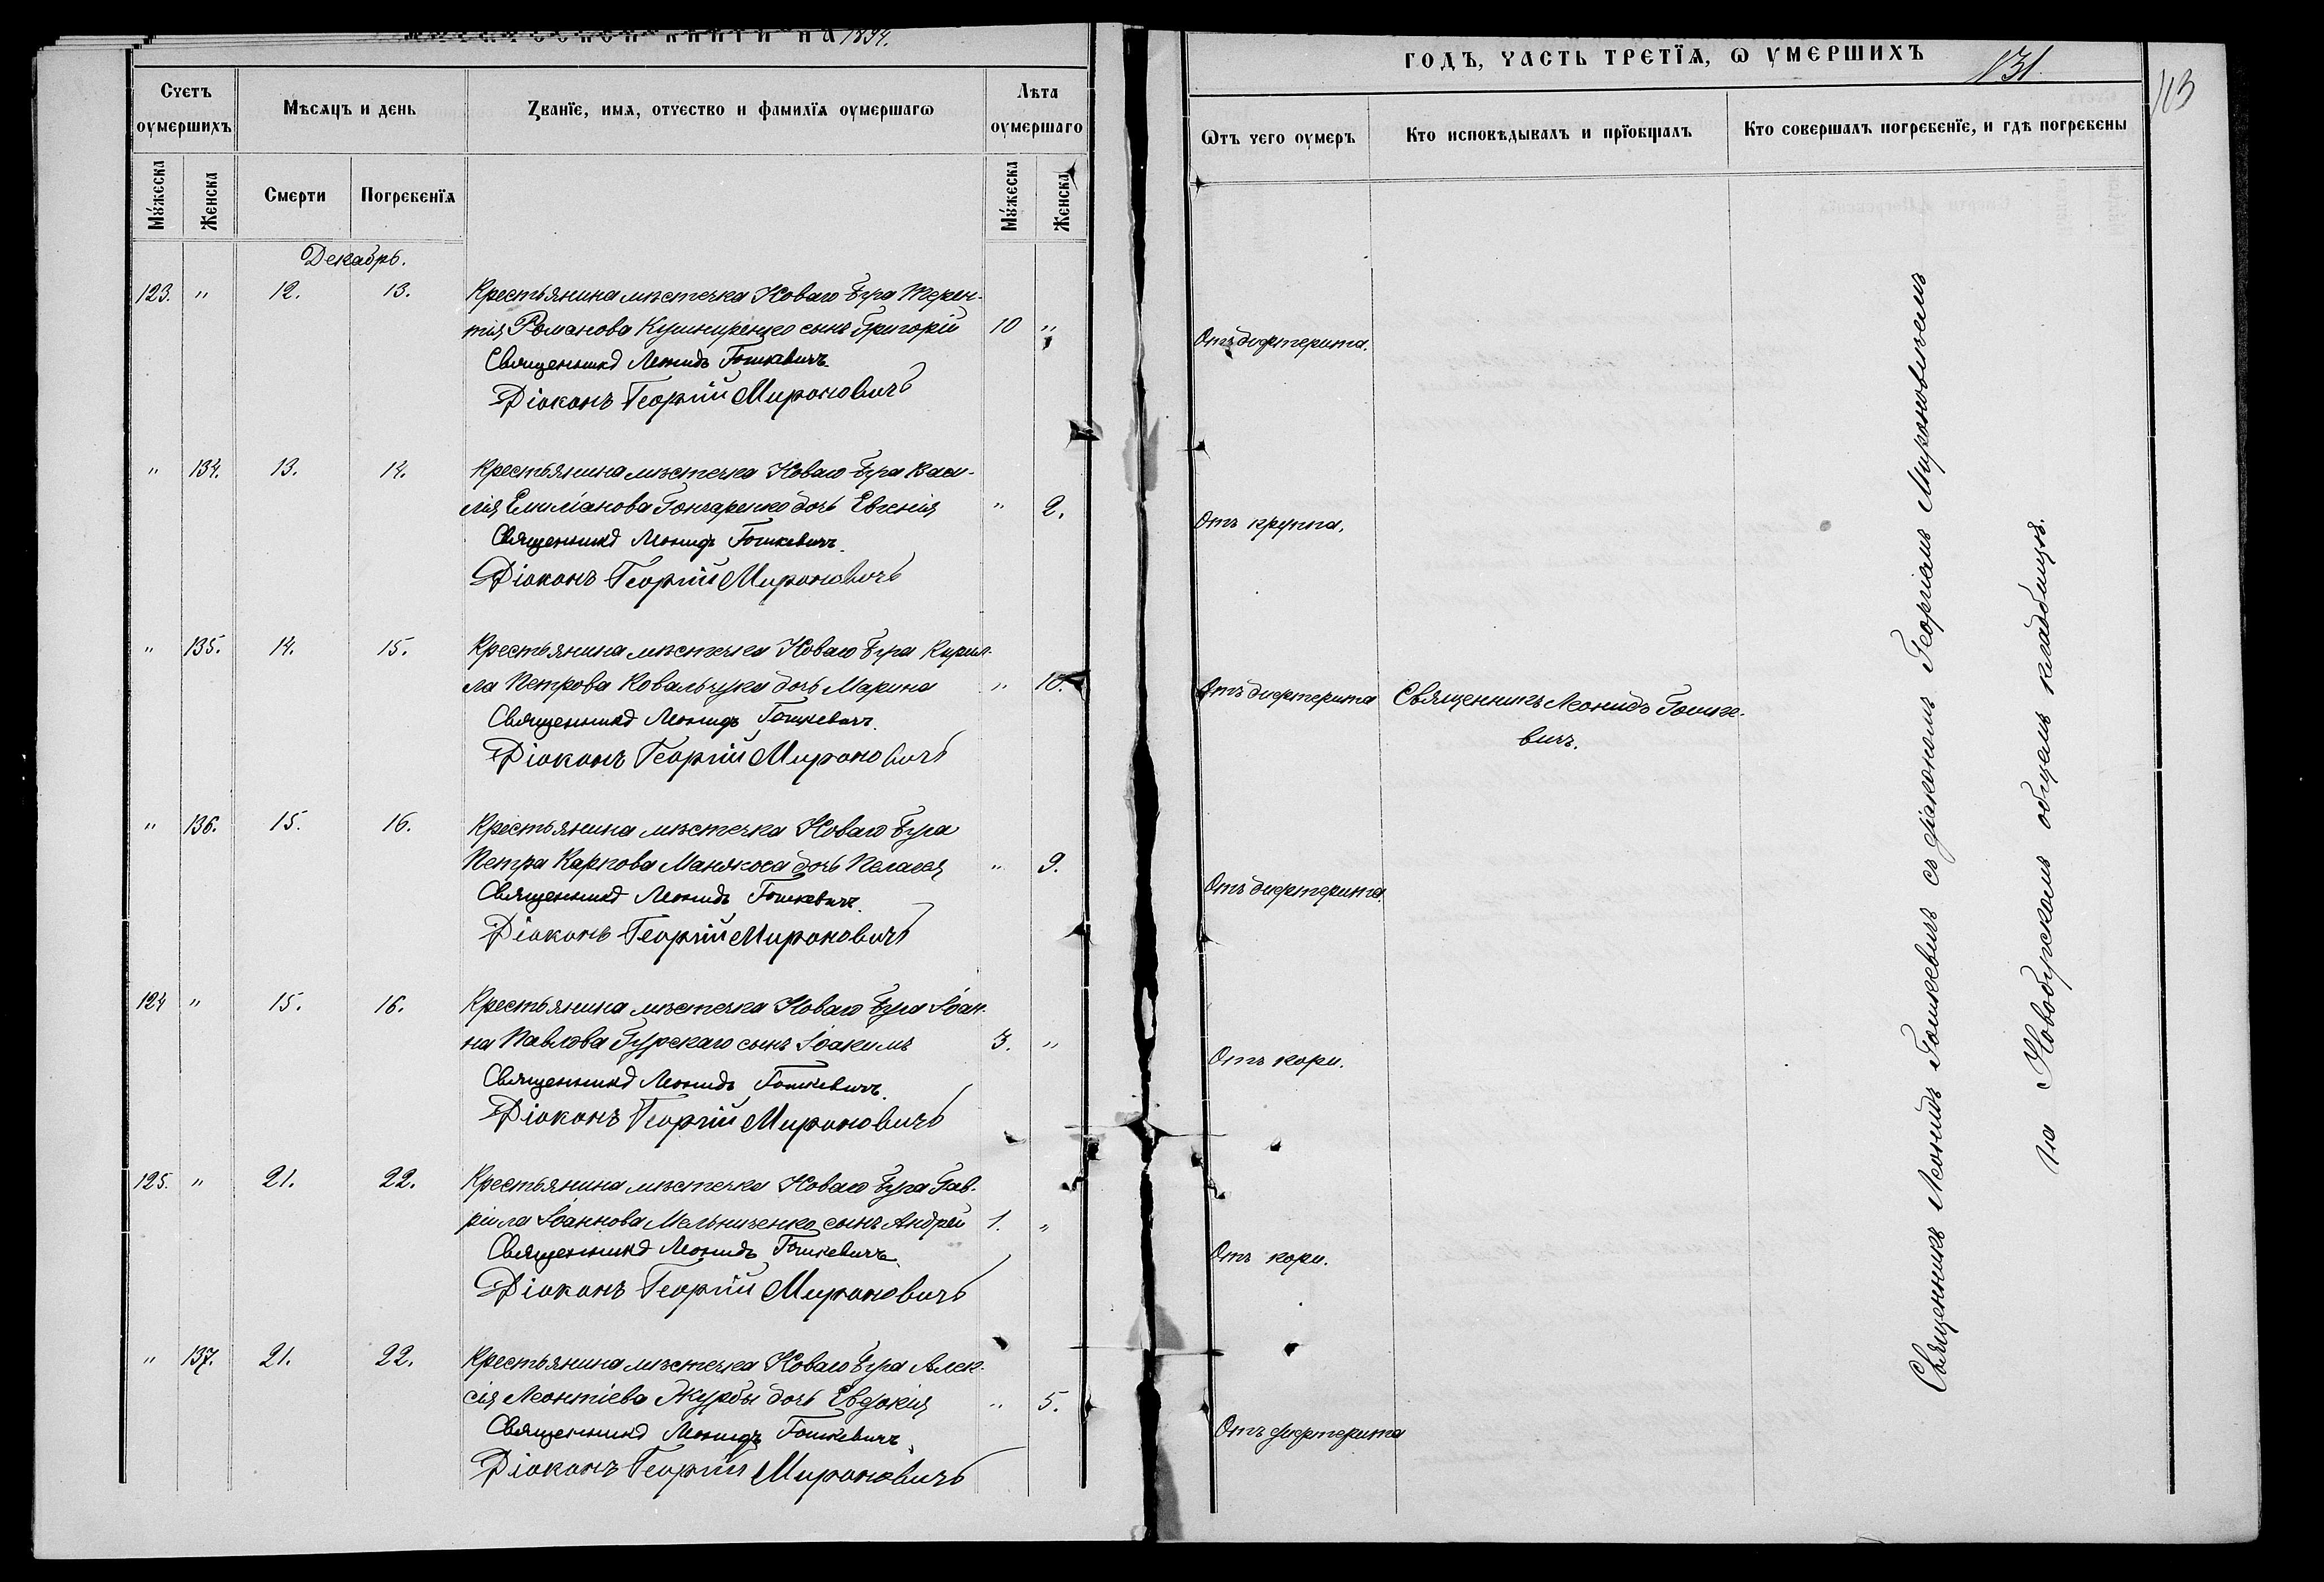 книги на 1894.
Счетъ оумершихъ
Мѣсяцъ и день
Званїе, имѧ, отчество и фамилїѧ оумершагѡ
Лѣта оумершаго
Мꙋжеска
Женска
Смерти
Погребенїѧ
Мꙋжеска
Женска
Декабрь.
123. " 12. 13. Крестьянина мѣстечка Новаго Буга Терен-
тія Романова Кушниренко сынъ Григорій 10 "
Священникъ Леонидъ Гошкевичъ.
Діаконъ Георгій Мироновичъ
" 134. 13. 14. Крестьянина мѣстечка Новаго Буга Васи-
лія Емиліанова Гончаренко дочь Евгенія " 2.
Священникъ Леонидъ Гошкевичъ.
Діаконъ Георгій Мироновичъ
" 135. 14. 15. Крестьянина мѣстечка Новаго Буга Кирил-
ла Петрова Ковальчука дочь Марина " 10.
Священникъ Леонидъ Гошкевичъ.
Діаконъ Георгій Мироновичъ
" 136. 15. 16. Крестьянина мѣстечка Новаго Буга
Петра Карпова Манякоса дочь Пелагея " 9.
Священникъ Леонидъ Гошкевичъ.
Діаконъ Георгій Мироновичъ
124 " 15. 16. Крестьянина мѣстечка Новаго Буга Іоан-
на Павлова Гурскаго сынъ Іоакимъ 3. "
Священникъ Леонидъ Гошкевичъ.
Діаконъ Георгій Мироновичъ
125. " 21. 22. Крестьянина мѣстечка Новаго Буга Гав-
ріила Іоаннова Мельниченко сынъ Андрей 1. "
Священникъ Леонидъ Гошкевичъ.
Діаконъ Георгій Мироновичъ
" 137. 21. 22. Крестьянина мѣстечка Новаго Буга Алек-
сія Леонтіева Журбы дочь Евдокія " 5.
Священникъ Леонидъ Гошкевичъ.
Діаконъ Георгій Мироновичъ
годъ, часть третїѧ, ѡ умершихъ
131.
113
Ѿтъ чего оумеръ
Кто исповѣдывалъ и прїобщалъ
Кто совершалъ погребенїе, и гдѣ погребены
Отъ дифтерита.
Отъ круппа.
Отъ дифтерита
Священникъ Леонидъ Гошке-
вичъ.
Отъ дифтерита.
Отъ кори.
Отъ кори.
Отъ дифтерита
Священникъ Леонидъ Гошкевичъ съ діакономъ Георгіемъ Мироновичемъ
на Новобугскомъ общемъ кладбищѣ.